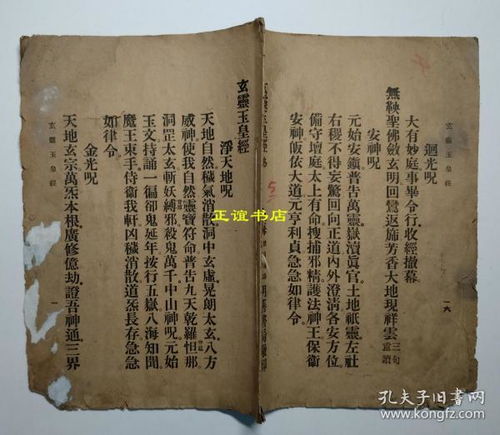 玄靈玉皇經
一六
迴光呪
大有妙庭事畢令行收經撤幕
無鞅聖佛斂玄明回鸞返斾芳香大地現祥雲 三句當讀
安神呪
元始安鎮普告萬靈嶽瀆眞官土地祇靈左社
右稷不得妄驚回向正道內外澄清各安方位
備守壇庭太上有命搜捕邪精護法神王保衛
安神皈依大道元亨利貞急急如律令
玄靈玉皇經
淨天地呪
天地自然穢炁消散洞中玄虛晃朗太玄八方
威神使我自然靈寶符命普告九天乾羅怛那
洞罡太玄斬妖縛邪殺鬼萬千中山神呪元始
玉文持誦一徧卻鬼延年按行五嶽八海知聞
魔王束手侍衛我軒凶穢消散道炁長存急急
如律令
金光呪
天地玄宗萬炁本根廣修億劫證吾神通三界
玄靈玉皇經
一
正谊书店
孔夫子旧书网
kongfz.com